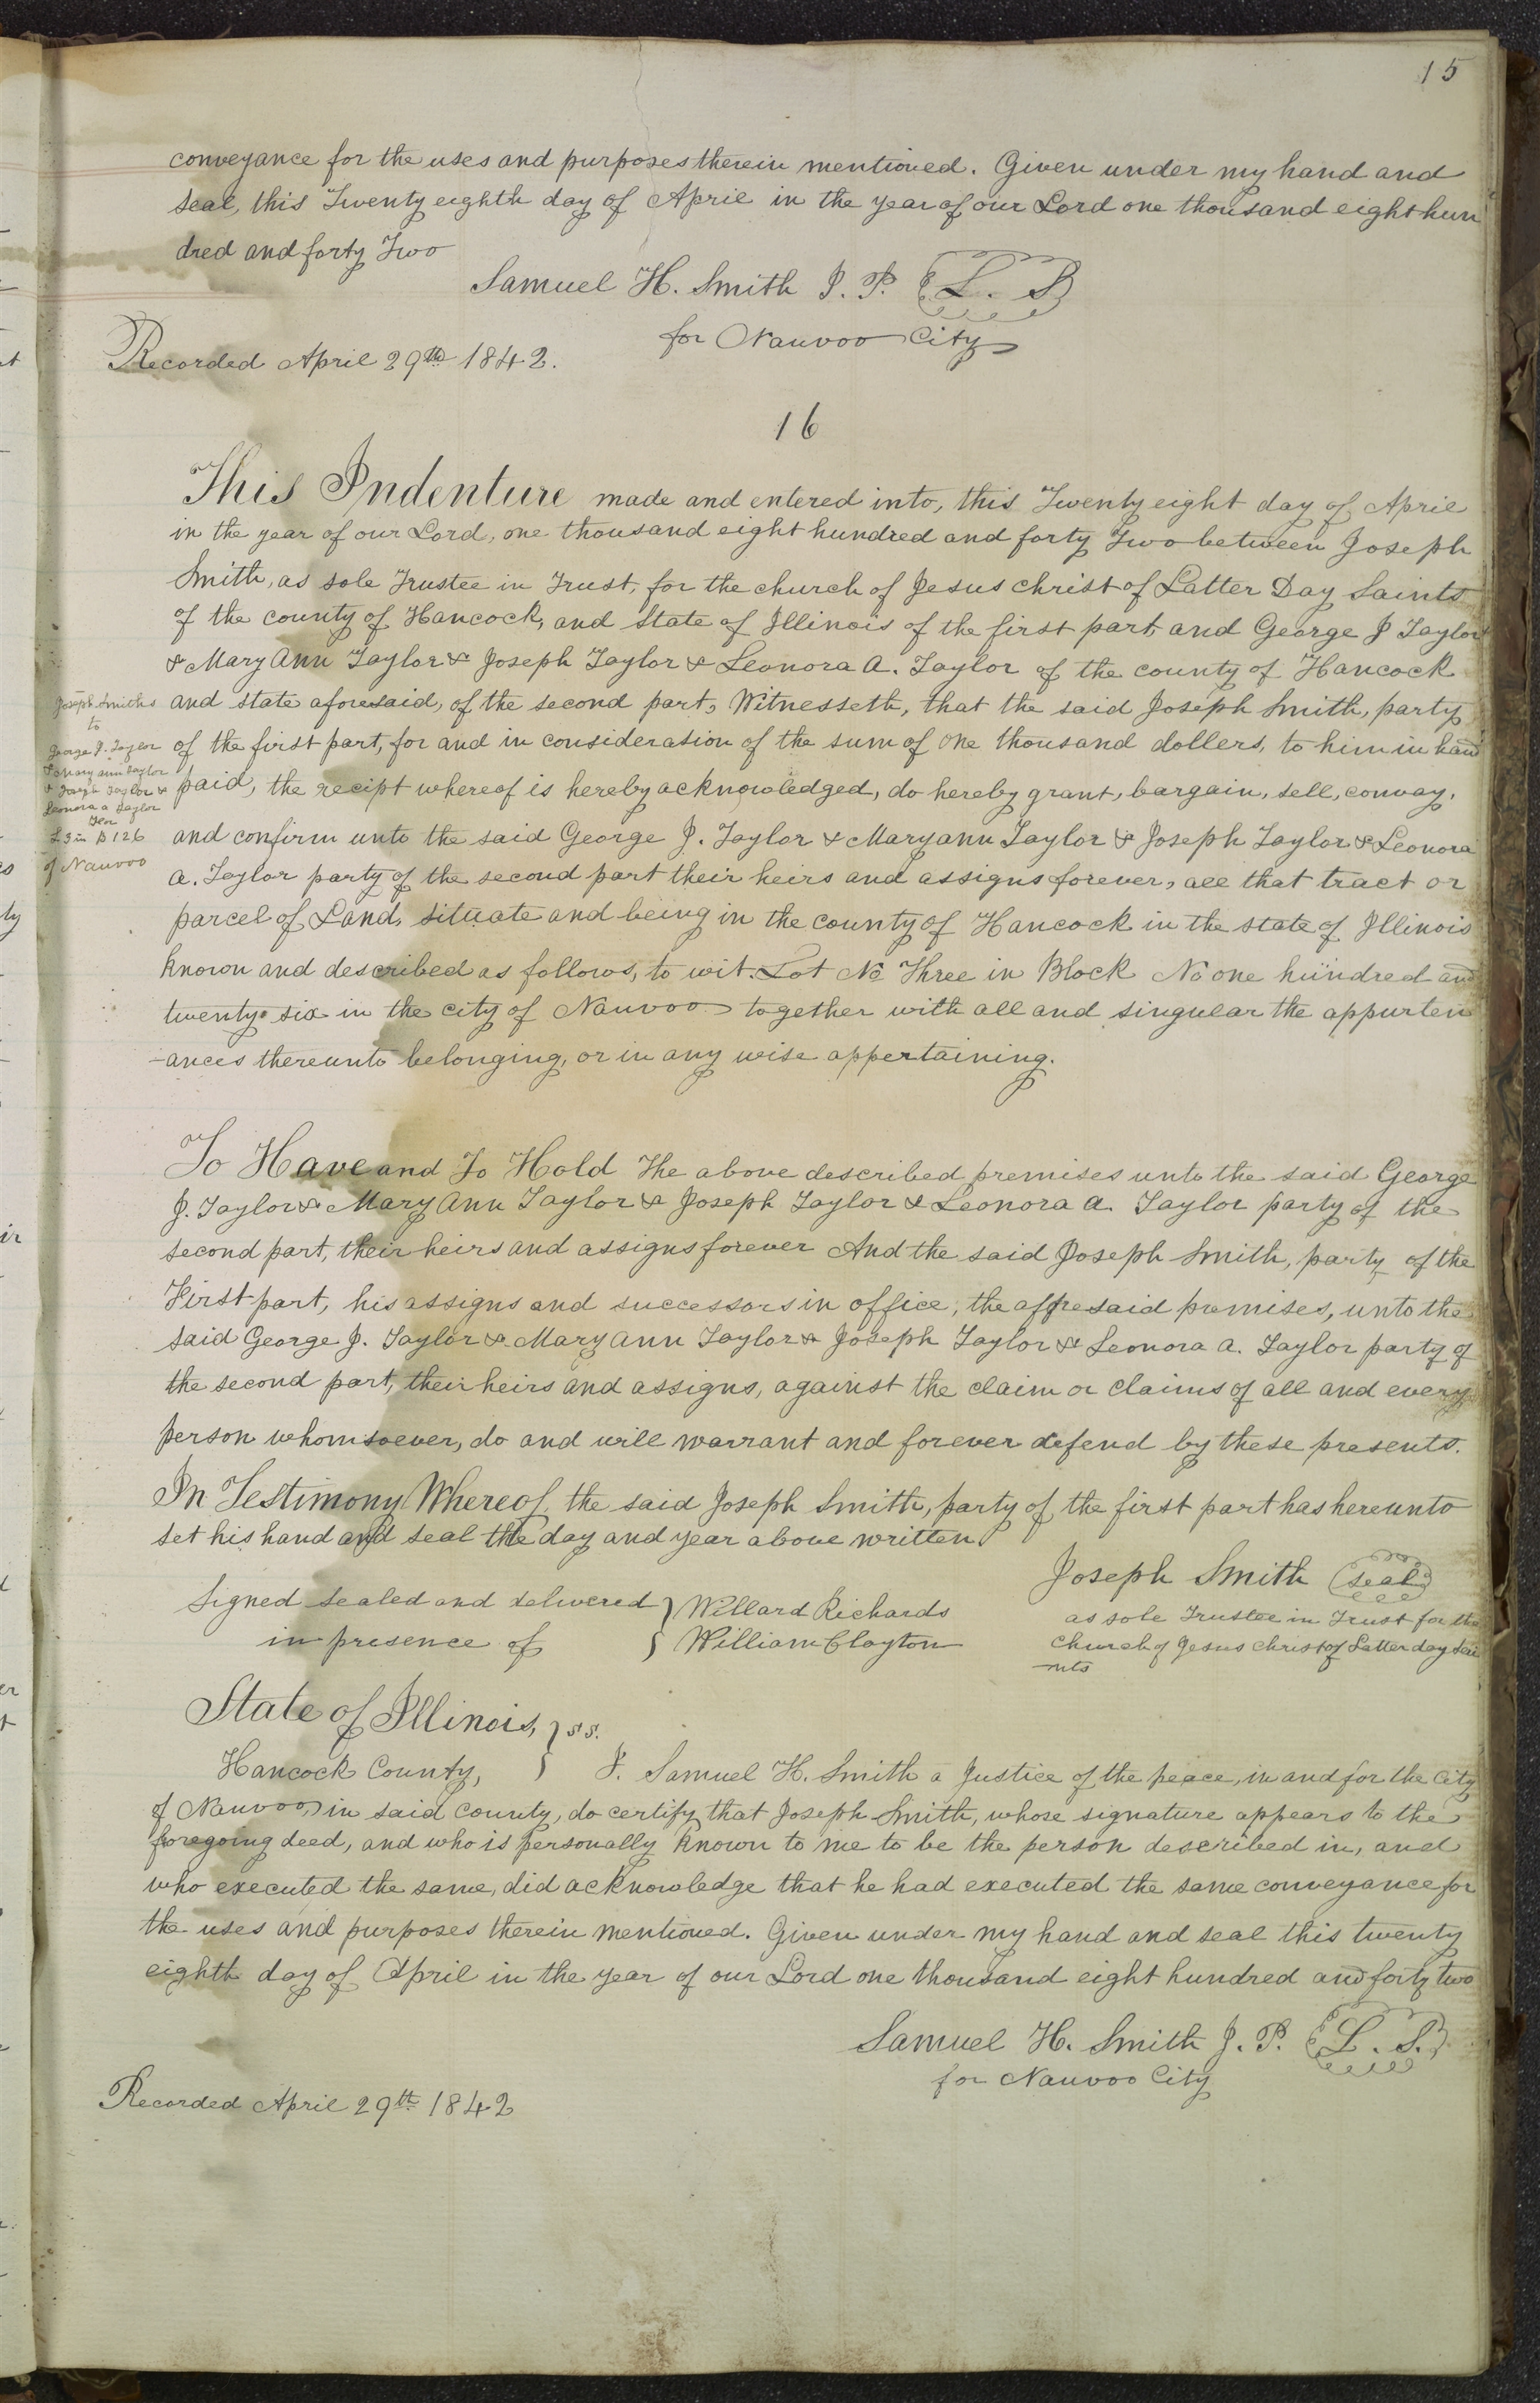 15
conveyance for the uses and purposes therein mentioned. Given under my hand and
seal, this Twenty eighth day of April in the year of our Lord one thousand eight hun
dred and forty Two
Samuel H. Smith J. P. L. S
for Nauvoo City
Recorded April 29th 1842.
16
This Indenture made and entered into, this Twenty eight day of April
in the year of our Lord, one thousand eight hundred and forty Two between Joseph
Smith, as sole Trustee in Trust, for the church of Jesus christ of Latter Day Saints
of the county of Hancock, and State of Illinois of the first part, and George J Taylor
& Mary Ann Taylor & Joseph Taylor & Leonora A. Taylor of the county of Hancock
and state aforesaid, of the second part, Witnesseth, that the said Joseph Smith, party
of the first part, for and in consideration of the sum of one thousand dollers, to him in hand
paid, the recipt whereof is hereby acknowledged, do hereby grant, bargain, sell, convay,
and confirm unto the said George J. Taylor & Maryann Taylor & Joseph Taylor & Leonora
A. Taylor party of the second part their heirs and assigns forever, all that tract or
parcel of Land, situate and being in the county of Hancock in the state of Illinois
known and described as follows, to wit. Lot No Three in Block No one hundred and
twenty six in the city of Nauvoo together with all and singular the appurten
-ances thereunto belonging, or in any wise appertaining.
Joseph Smiths
to
George J. Taylor
& Mary ann Taylor
& Joseph Taylor &
Leonora a Taylor
L 3 in B 126
of Nauvoo
To Have and To Hold The above described premises unto the said George
J. Taylor & Mary Ann Taylor & Joseph Taylor & Leonora A. Taylor party of the
second part, their heirs and assigns forever And the said Joseph Smith, party of the
First part, his assigns and successors in office, the afforesaid premises, unto the
said George J. Taylor & Mary Ann Taylor & Joseph Taylor & Leonora A. Taylor party of
the second part, their heirs and assigns, against the claim or claims of all and every
person whomsoever, do and will warrant and forever defend by these presents.
In Testimony Whereof, the said Joseph Smith, party of the first part has hereunto
set his hand and seal the day and year above written
Joseph Smith seal
as sole Trustee in Trust for the
Church of Jesus Christ of Latter day Sai
-nts
Signed sealed and delivered } Willard Richards
in presence of } William Clayton
State of Illinois, } ss.
Hancock County, } I. Samuel H. Smith a Justice of the peace, in and for the City
of Nauvoo, in said county, do certify that Joseph Smith, whose signature appears to the
foregoing deed, and who is personally known to me to be the person described in, and
who executed the same, did acknowledge that he had executed the same conveyance for
the uses and purposes therein mentioned. Given under my hand and seal this twenty
eighth day of April in the year of our Lord one thousand eight hundred and forty two
Samuel H. Smith J. P. L. S.
for Nauvoo City
Recorded April 29th 1842